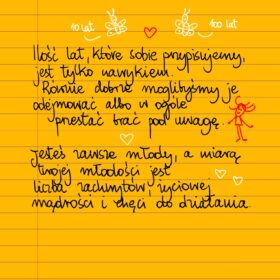 10 lat 100 lat
Ilość lat, które sobie przypisujemy,
jest tylko nawykiem.
Równie dobrze moglibyśmy je
odejmować albo w ogóle
przestać brać pod uwagę.
Jesteś zawsze młody, a miarą
twojej młodości jest
liczba zachwytów, życiowej
mądrości i chęci do działania